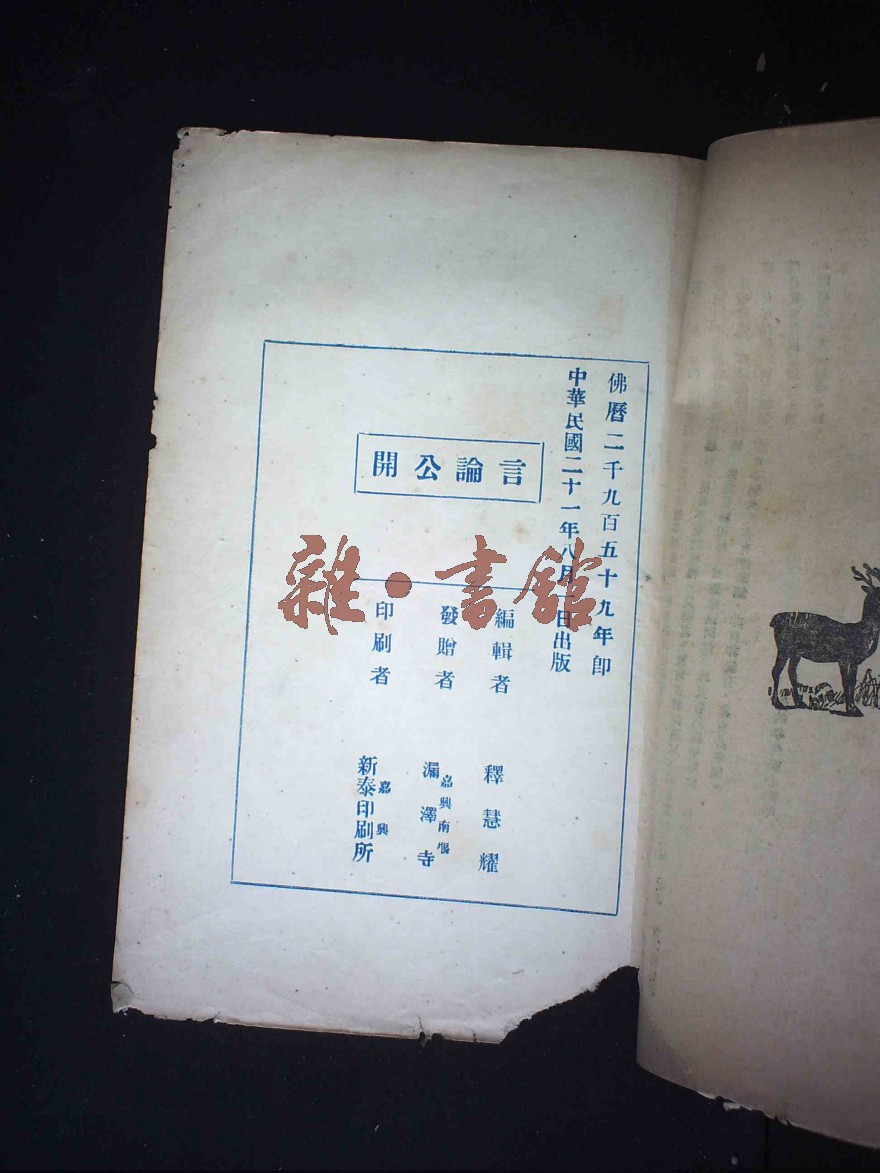 佛曆二千九百五十九年印
中華民國二十一年八月一日出版
言論公開
編輯者 釋慧耀
發贈者 嘉興南堰 漏澤寺
印刷者 嘉興 新泰印刷所
雜·書館